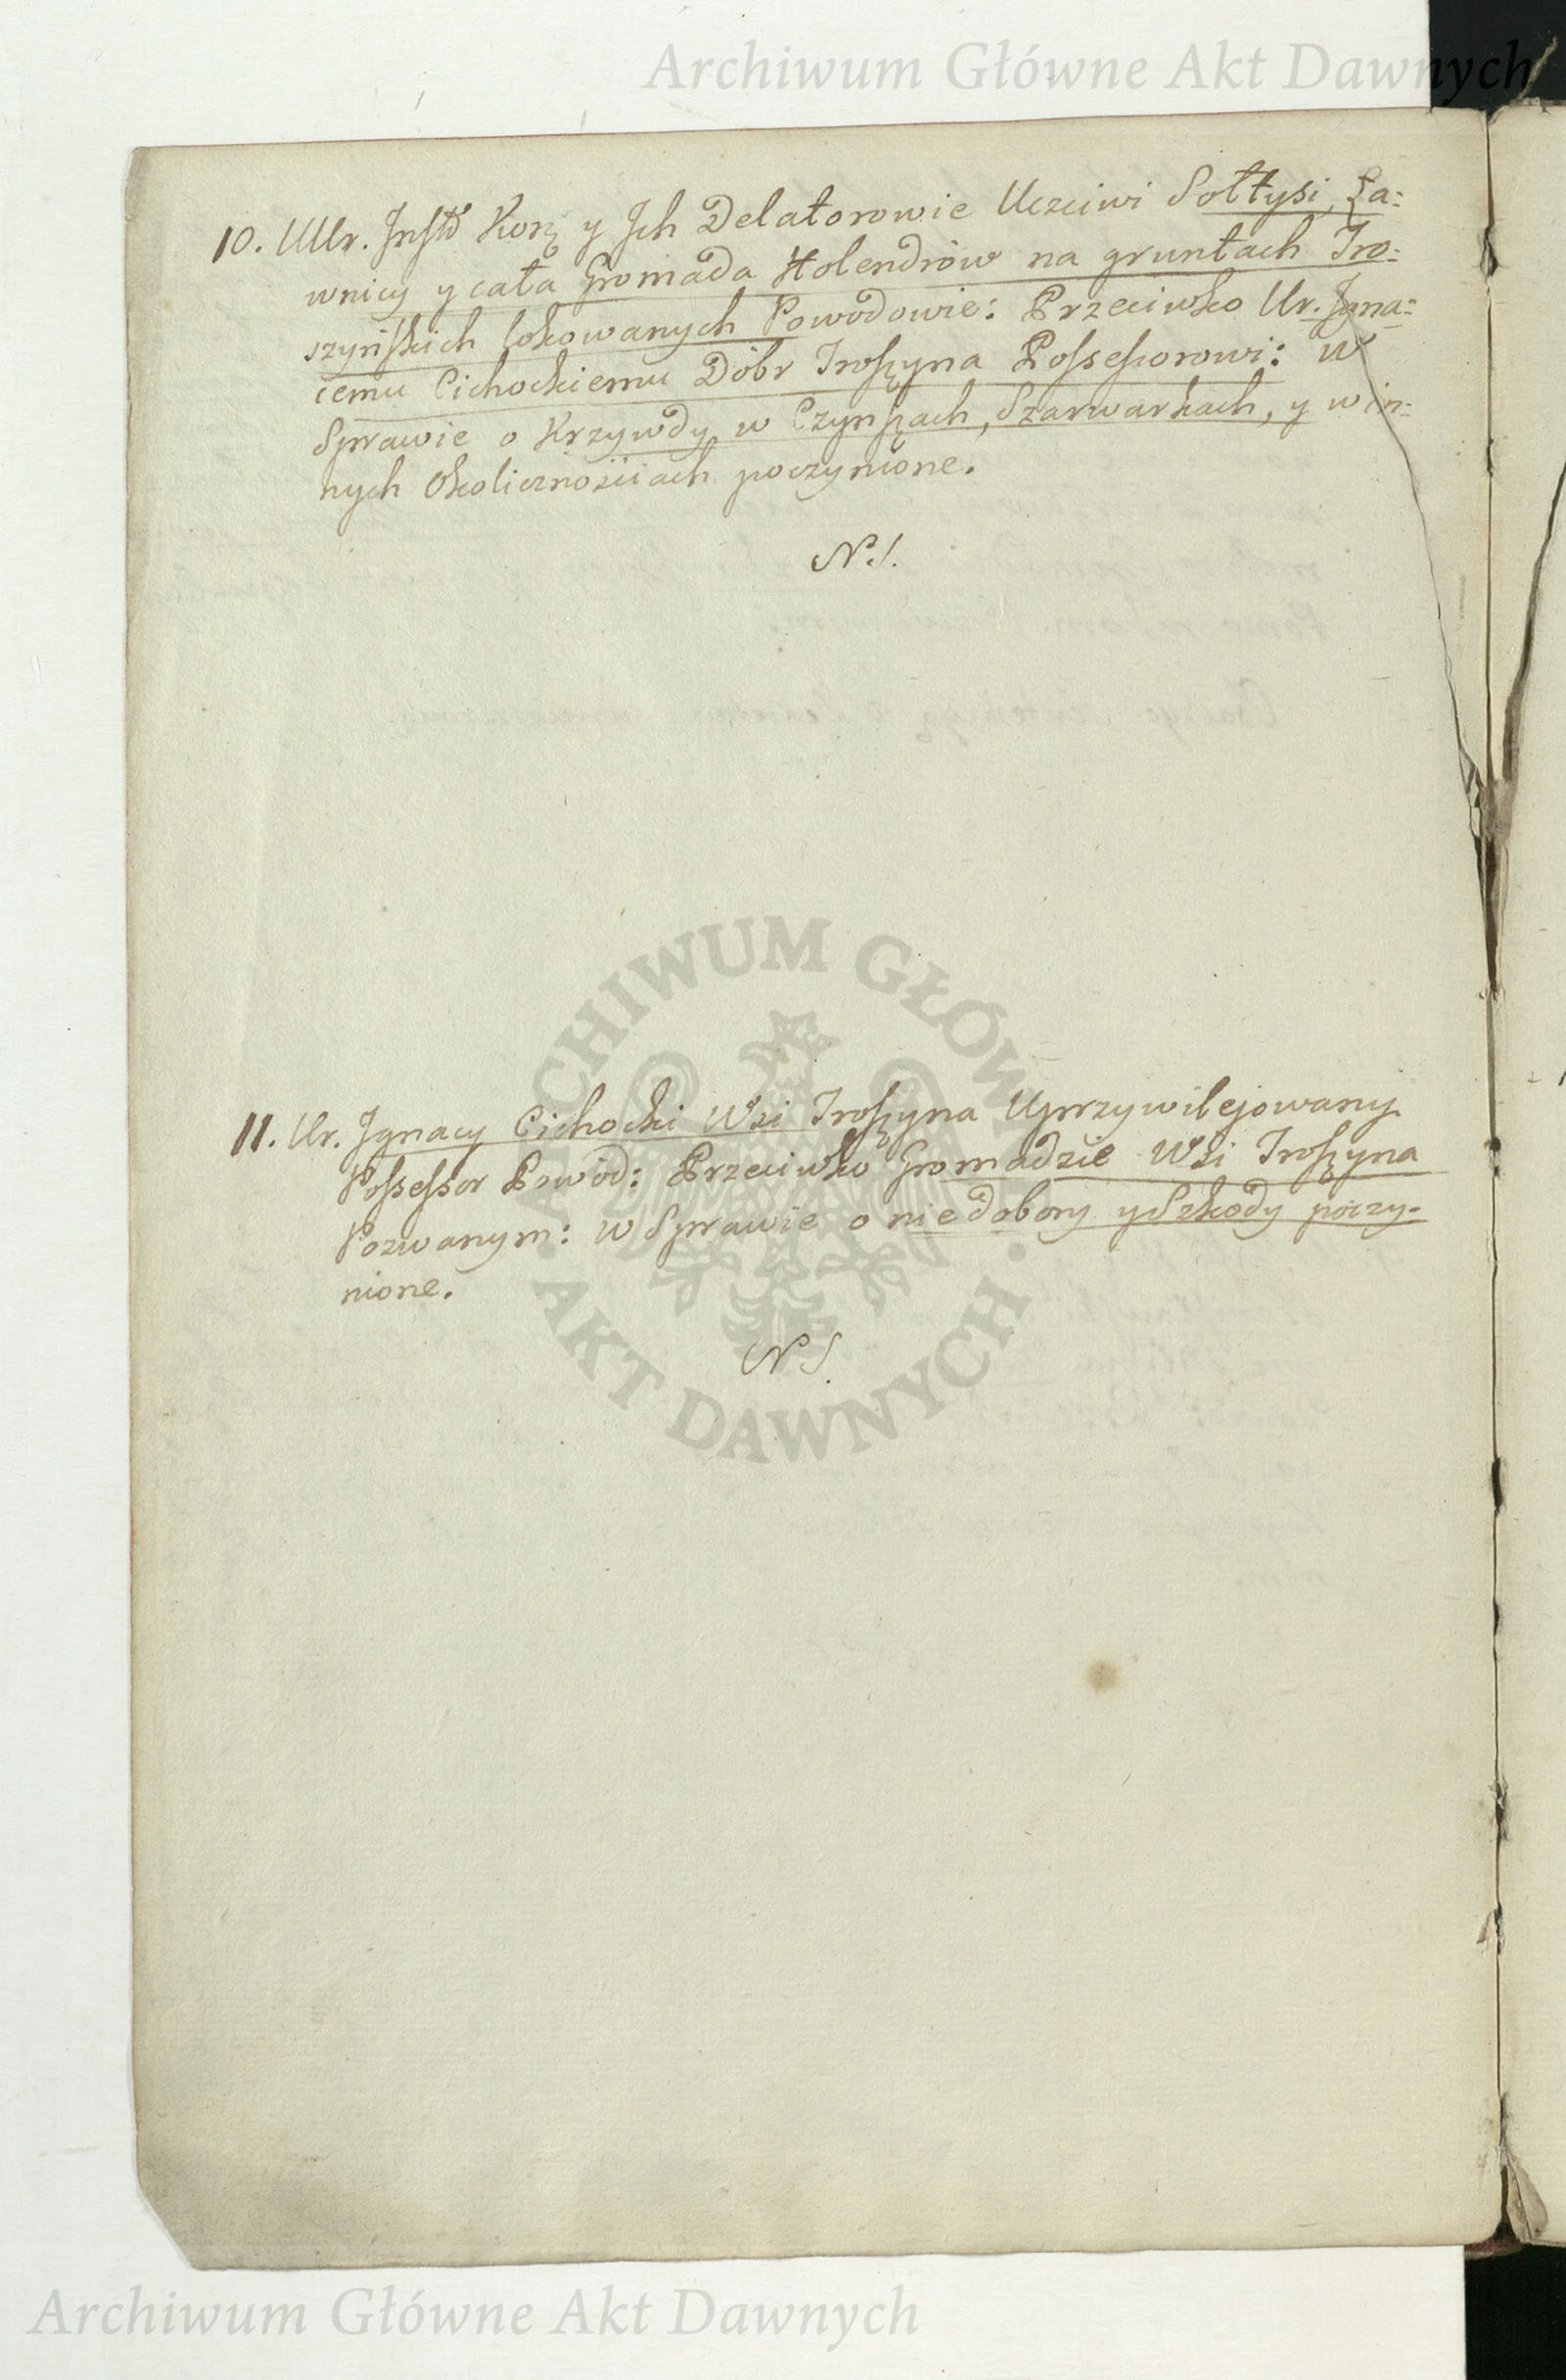 Archiwum Główne Akt Dawnych
10. UUr. Instd Korz y Ich Delatorowie Uczciwi Sołtysi, Ła=
wnicy y cała Gromada Holendrów na gruntach Tro=
szyńskich lokowanych Powodowie: Przeciwko Ur. Igna=
cemu Cichockiemu Dóbr Troszyna Possessorowi: w
Sprawie o Krzywdy w Czynszach, Szarwarkach, y w in=
nych Okolicznościach poczynione.
N S.
ARCHIWUM GŁÓWNE
11. Ur. Ignacy Cichocki Wsi Troszyna Uprzywilejowany
Possessor Powód: Przeciwko Gromadzie Wsi Troszyna
Pozwanym: w Sprawie o niedobory y Szkody poczy=
nione.
N S.
AKT DAWNYCH
Archiwum Główne Akt Dawnych